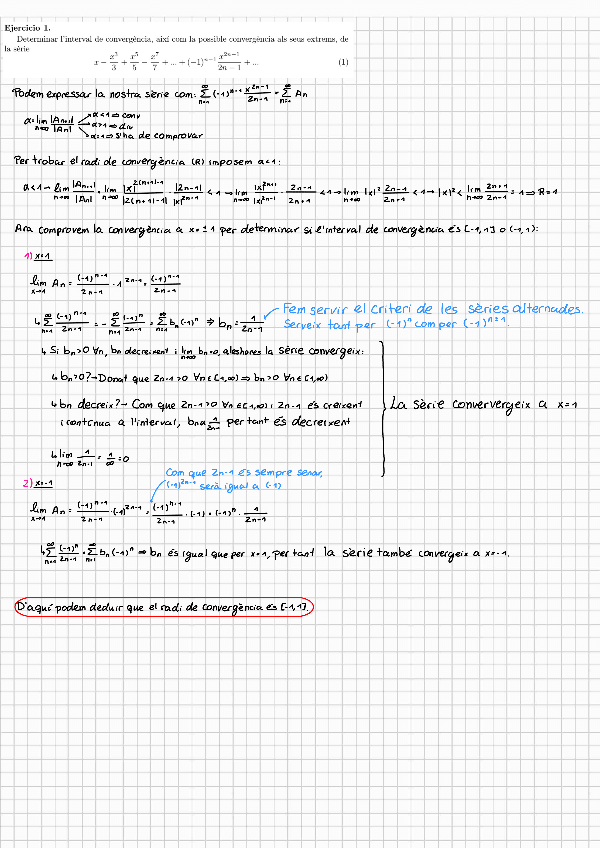 Ejercicio 1.
Determinar l'interval de convergència, així com la possible convergència als seus extrems, de
la sèrie
x − x³/3 + x⁵/5 − x⁷/7 + ... + (−1)ⁿ⁻¹ x²ⁿ⁻¹/(2n − 1) + ... (1)
Podem expressar la nostra sèrie com: ∑_{n=1}^∞ (-1)ⁿ⁻¹ x²ⁿ⁻¹/(2n-1) = ∑_{n=1}^∞ An
α = lim_{n→∞} |An+1|/|An| → α<1 ⇒ conv
α>1 ⇒ div
α=1 ⇒ s'ha de comprovar
Per trobar el radi de convergència (R) imposem α<1:
α<1 → lim_{n→∞} |An+1|/|An| = lim_{n→∞} |x|^{2(n+1)-1}/|2(n+1)-1| · |2n-1|/|x|²ⁿ⁻¹ < 1 → lim_{n→∞} |x|²ⁿ⁺¹/|x|²ⁿ⁻¹ · (2n-1)/(2n+1) < 1 → lim_{n→∞} |x|² (2n-1)/(2n+1) < 1 → |x|² < lim_{n→∞} (2n+1)/(2n-1) = 1 ⇒ R=1
Ara comprovem la convergència a x=±1 per determinar si l'interval de convergència és [-1,1] o (-1,1):
1) x=1
lim_{x→1} An = (-1)ⁿ⁻¹/(2n-1) · 1²ⁿ⁻¹ = (-1)ⁿ⁻¹/(2n-1)
↳ ∑_{n=1}^∞ (-1)ⁿ⁻¹/(2n-1) = - ∑_{n=1}^∞ (-1)ⁿ/(2n-1) = ∑_{n=1}^∞ bn(-1)ⁿ ⇒ bn = 1/(2n-1)
Fem servir el criteri de les sèries alternades.
Serveix tant per (-1)ⁿ com per (-1)ⁿ⁺¹.
↳ Si bn>0 ∀n, bn decreixent i lim_{n→∞} bn=0, aleshores la sèrie convergeix:
↳ bn>0? → Donat que 2n-1>0 ∀n∈[1,∞) ⇒ bn>0 ∀n∈[1,∞)
↳ bn decreix? → Com que 2n-1>0 ∀n∈[1,∞) i 2n-1 és creixent
i contnua a l'interval, bn α 1/2n per tant és decreixent
La sèrie conververgeix a x=1
↳ lim_{n→∞} 1/(2n-1) = 1/∞ = 0
2) x=-1
Com que 2n-1 és sempre senar,
(-1)²ⁿ⁻¹ serà igual a (-1)
lim_{x→1} An = (-1)ⁿ⁻¹/(2n-1) · (-1)²ⁿ⁻¹ = (-1)ⁿ⁻¹/(2n-1) · (-1) = (-1)ⁿ · 1/(2n-1)
↳ ∑_{n=1}^∞ (-1)ⁿ/(2n-1) = ∑_{n=1}^∞ bn(-1)ⁿ ⇒ bn és igual que per x=1, per tant la sèrie també convergeix a x=-1.
D'aquí podem deduir que el radi de convergència és [-1,1].